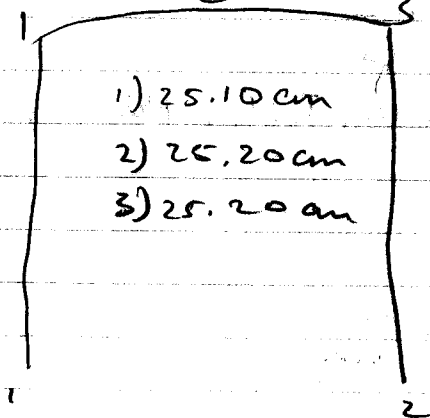 1
3
1) 25.10 cm
2) 25.20 cm
3) 25.20 cm
1
2